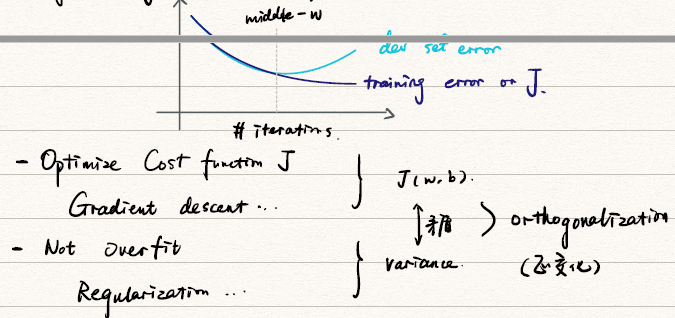 middle-w
dev set error
training error or J.
# iterations.
- Optimize Cost function J
Gradient descent ...
J(w,b).
矛盾
orthogonalization
(正交化)
- Not overfit
Regularization ...
variance.